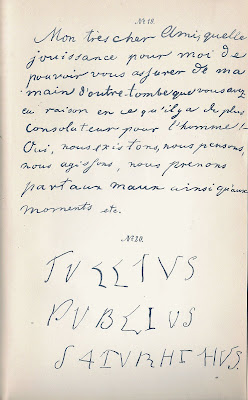 No. 19.
Mon tres cher Ami, quelle
jouissance pour moi de
pouvoir vous assurer de ma
main d'outre-tombe que vous avez
eu raison en ce qu'il y a de plus
Consolateur pour l'homme!
Oui, nous existons, nous pensons,
nous agissons, nous prenons
part aux maux ainsi qu'aux
moments etc.
No. 20.
TULLIUS
PUBLIUS
SATURNINUS.